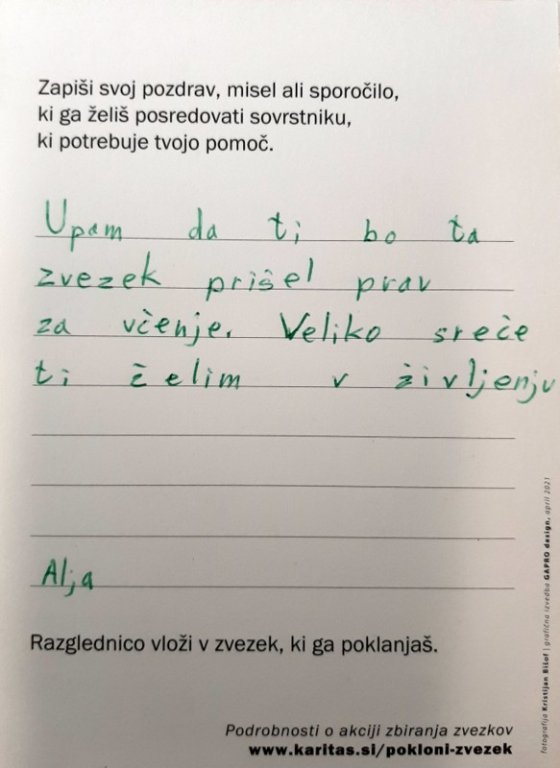 Zapiši svoj pozdrav, misel ali sporočilo,
ki ga želiš posredovati sovrstniku,
ki potrebuje tvojo pomoč.
Upam da ti bo ta
zvezek prišel prav
za včenje. Veliko sreče
ti želim v življenju
Alja
Razglednico vloži v zvezek, ki ga poklanjaš.
Podrobnosti o akciji zbiranja zvezkov
www.karitas.si/pokloni-zvezek
fotografija Kristijan Bišof | grafična izvedba GAPRO design, april 2021